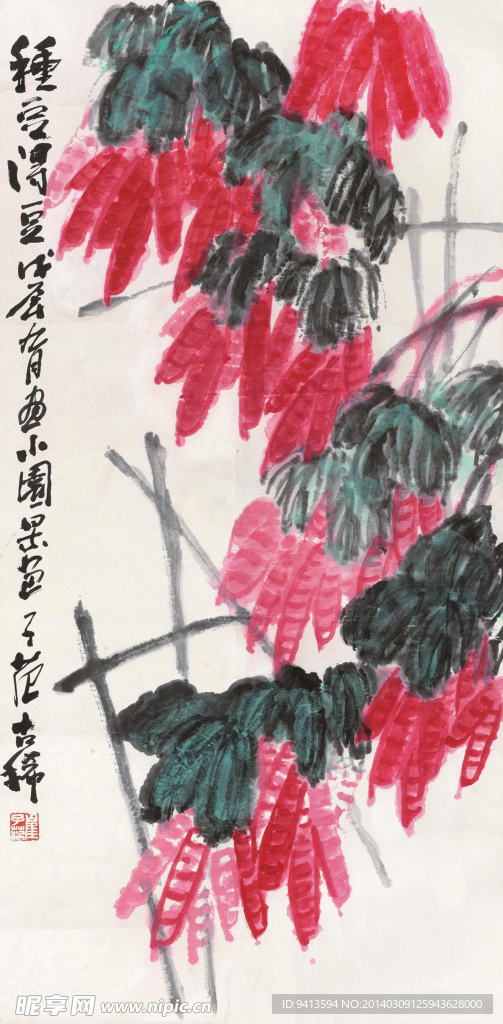 種豆得豆戊辰有画小園果画子范古稀
崔子范
昵享网 www.nipic.cn
ID:9413594 NO:20140309125943628000